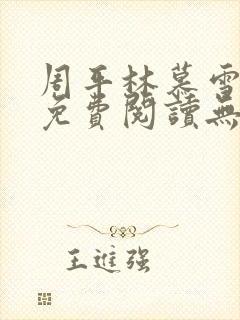 周平林慕雪
免費閱讀無
王進强